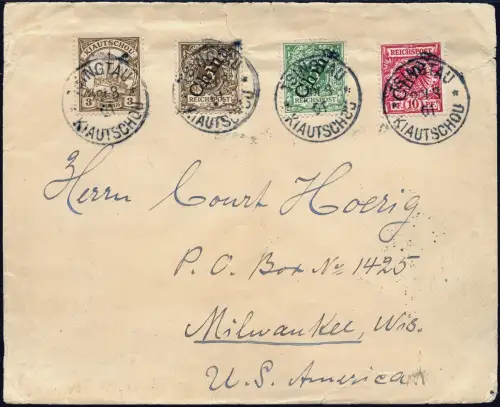 KIAUTSCHOU
3 3
China
REICHSPOST
China
REICHSPOST
REICHSPOST
China
10
TSINGTAU
KIAUTSCHOU
KIAUTSCHOU
KIAUTSCHOU
KIAUTSCHOU
Herrn Court Hoerig
P.O. Box No 1425
Milwaukee, Wis.
U.S. America